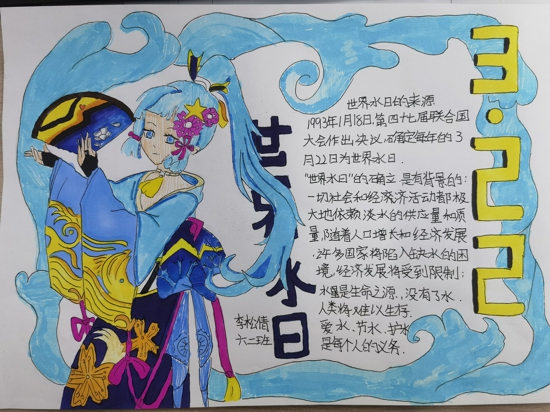 世界水日
3.22
世界水日的来源
1993年1月18日,第四十七届联合国
大会作出决议,确定每年的3
月22日为世界水日.
"世界水日"的确立是有背景的:
一切社会和经济济活动都极
大地依赖淡水的供应量和质
量,随着人口增长和经济发展
,许多国家将陷入缺水的困
境,经济发展将受到限制;
水是生命之源,没有了水,
人类将难以生存.
爱水、节水、护水
是每个人的义务.
李松倩
六二班